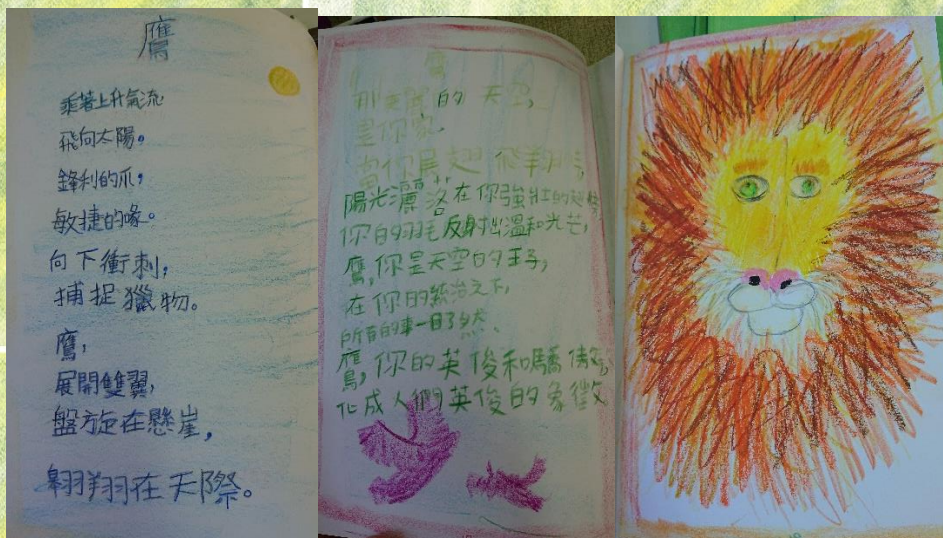 鷹
乘著上升氣流
飛向太陽。
鋒利的爪,
敏捷的喙。
向下衝刺,
捕捉獵物。
鷹,
展開雙翼,
盤旋在懸崖,
翱翔在天際。
的天空,
是你家,
當你展翅飛翔時,
陽光灑落在你強壯的翅膀
你的羽毛反射出溫和光芒,
鷹,你是天空的王子,
在你的統治之下,
所有的事一目了然、
鷹,你的英俊和驕傲
化成人們英俊的象徵